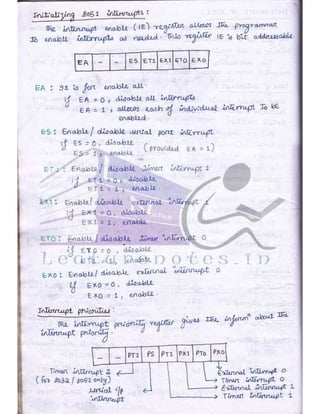 Initializing 8051 interrupts :
The interrupt enable (IE) register allows the programmer
to enable interrupts as needed. This register IE is bit addressable
EA - - ES ET1 EX1 ETO EXO
EA : It is for enable all.
if EA = 0 , disable all interrupts
EA = 1 , allows each of individual interrupt to be
enabled.
ES : Enable / disable serial port interrupt
if ES = 0 , disable
(provided EA = 1)
ES = 1 , enable
ET1 : Enable / disable Timer interrupt 1
if ET1 = 0 , disable
ET1 = 1 , enable
EX1 : Enable / disable external interrupt 1
if EX1 = 0 , disable
EX1 = 1 , enable
ETO : Enable / disable timer interrupt 0
if ETO = 0 , disable
ETO = 1 , enable
Learnnotes.in
EXO : Enable / disable external interrupt 0
if EXO = 0 , disable
EXO = 1 , enable.
Interrupt priorities :
The interrupt priority register gives the inform" about the
interrupt priority.
- - PT2 PS PT1 PX1 PTO PXO
Timer interrupt 2
(for 8032 / 8052 only)
serial i/p
interrupt
External interrupt 0
Timer interrupt 0
External interrupt 1
Timer interrupt 1